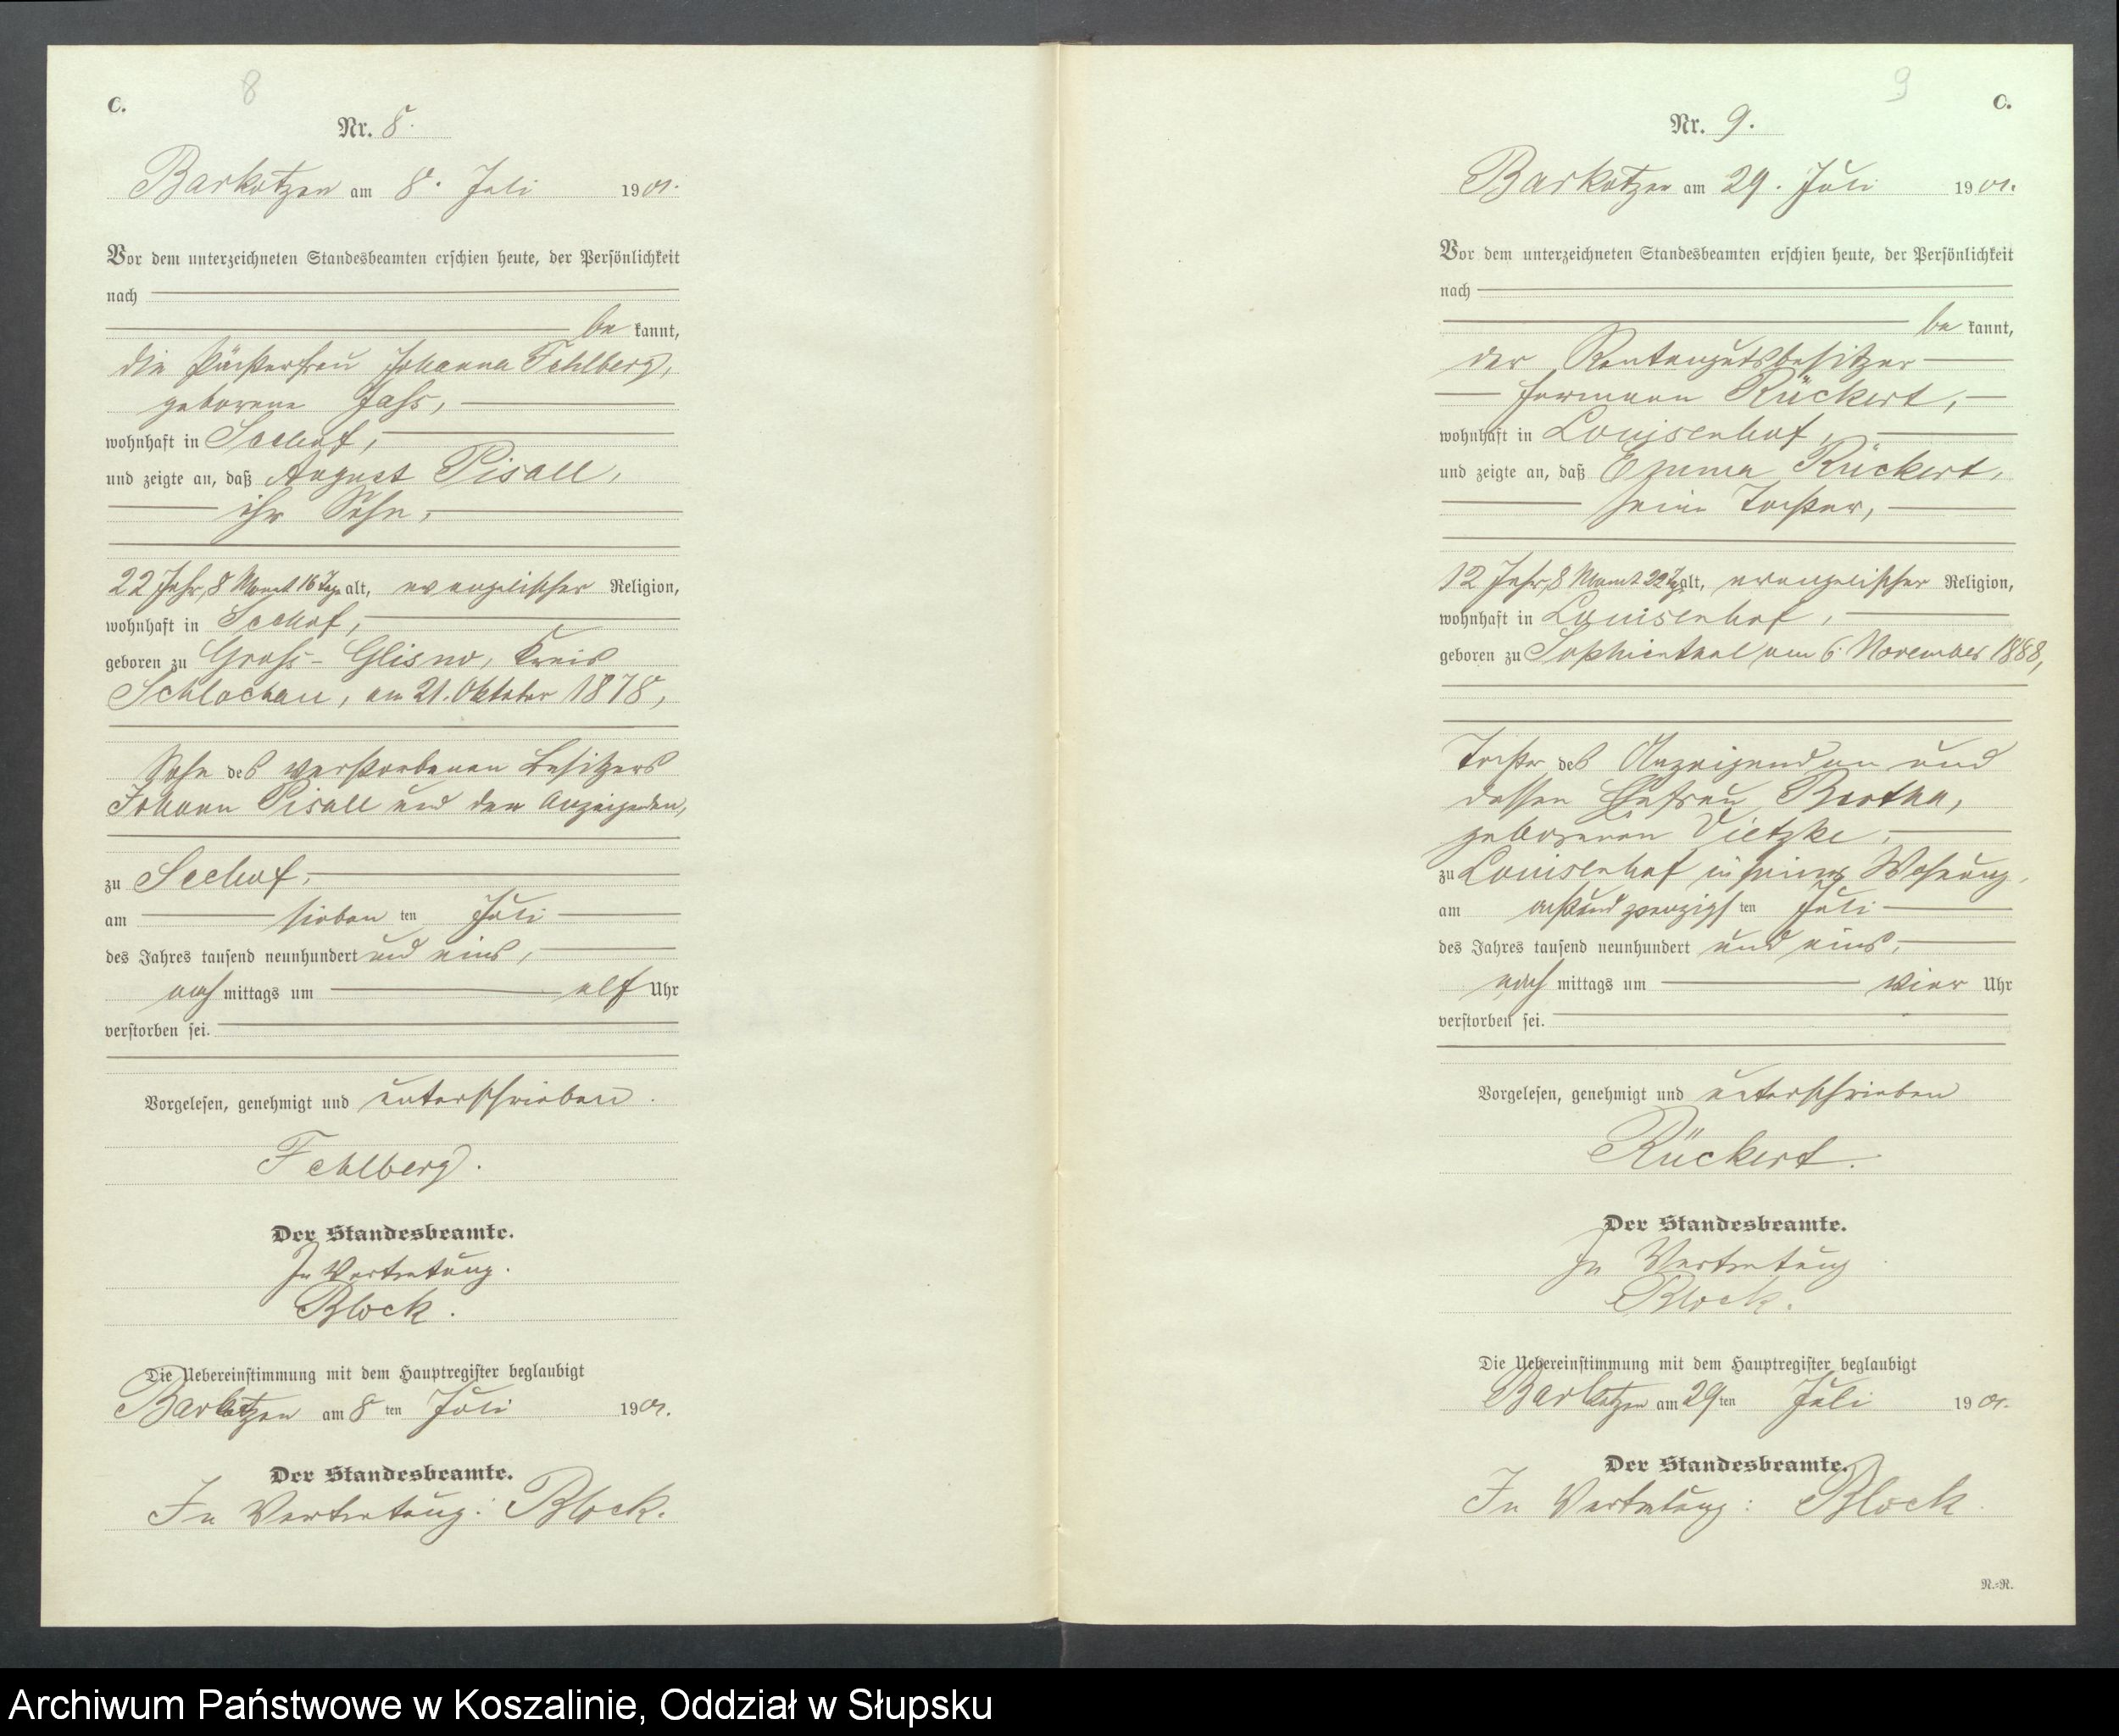 C.
8
Nr. 8.
Barkotzen am 8. Juli 1901.
Vor dem unterzeichneten Standesbeamten erschien heute, der Persönlichkeit
nach
be kannt,
die Pächterfrau Johanna Fehlberg,
geborene Jahs,
wohnhaft in Seehof,
und zeigte an, daß August Pisall,
ihr Sohn,
22 Jahr, 8 Monat 16 Tage alt, evangelischer Religion,
wohnhaft in Seehof,
geboren zu Gross-Glisno, Kreis
Schlochau, am 21. Oktober 1878,
Sohn des verstorbenen Besitzers
Johann Pisall und der Anzeigenden,
zu Seehof,
am sieben ten Juli
des Jahres tausend neunhundert und eins,
nach mittags um elf Uhr
verstorben sei.
Vorgelesen, genehmigt und unterschrieben.
Fehlberg.
Der Standesbeamte.
In Vertretung.
Block.
Die Uebereinstimmung mit dem Hauptregister beglaubigt
Barkotzen am 8 ten Juli 1901.
Der Standesbeamte.
In Vertretung: Block.
9
C.
Nr. 9.
Barkotzen am 29. Juli 1901.
Vor dem unterzeichneten Standesbeamten erschien heute, der Persönlichkeit
nach
be kannt,
der Rentengutsbesitzer
Hermann Rückert,
wohnhaft in Louisenhof,
und zeigte an, daß Emma Rückert,
seine Tochter,
12 Jahr, 8 Monat 22 Tg alt, evangelischer Religion,
wohnhaft in Louisenhof,
geboren zu Sophienthal am 6. November 1888,
Tochter des Anzeigenden und
dessen Ehefrau Bertha,
geborenen Vietzke,
zu Louisenhof in seiner Wohnung,
am achtundzwanzigs ten Juli
des Jahres tausend neunhundert und eins,
nach mittags um vier Uhr
verstorben sei.
Vorgelesen, genehmigt und unterschrieben
Rückert.
Der Standesbeamte.
In Vertretung
Block.
Die Uebereinstimmung mit dem Hauptregister beglaubigt
Barkotzen am 29 ten Juli 1901.
Der Standesbeamte.
In Vertretung: Block
N.=N.
Archiwum Państwowe w Koszalinie, Oddział w Słupsku